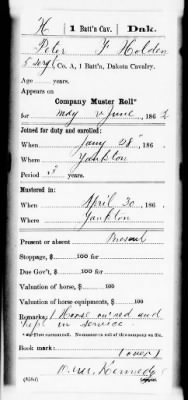 H 1 Batt'n Cav. Dak.
Peter F Holden
5 Serg, Co. A, 1 Batt'n, Dakota Cavalry.
Age years.
Appears on
Company Muster Roll*
for May & June, 1862
Joined for duty and enrolled:
When Jany 28", 186
Where Yankton
Period 3 years.
Mustered in:
When April 30, 186
Where Yankton
Present or absent Present
Stoppage, $ 100 for
Due Gov't, $ 100 for
Valuation of horse, $ 100
Valuation of horse equipments, $ 100
Remarks: 1 Horse owned and
kept in service.
Book mark:
(over)
Kennedy